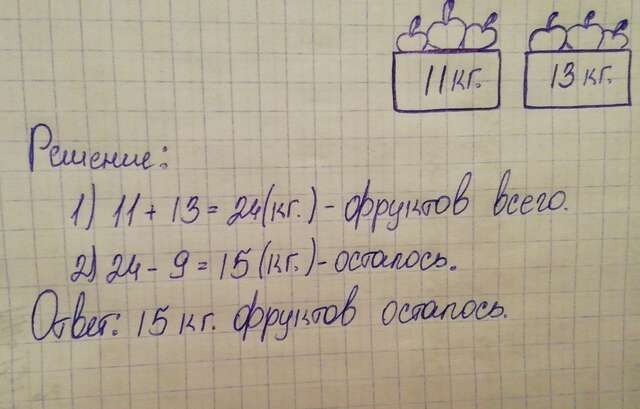 11 кг. 13 кг.
Решение:
1) 11 + 13 = 24 (кг.) - фруктов всего.
2) 24 - 9 = 15 (кг.) - осталось.
Ответ: 15 кг. фруктов осталось.